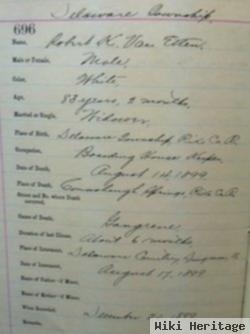 Delaware Township
696
Name, Robert K. Van Etten
Male or Female, Male
Color, White
Age, 83 years, 2 months,
Married or Single, Widower
Place of Birth, Delaware Township, Pike Co. Pa.
Occupation, Boarding House Keeper
Date of Death, August 14, 1899
Place of Death, Springs, Pike Co. Pa.
Street and No. where Death occurred,
Cause of Death, Gangrene
Duration of last Illness, About 6 months
Place of Interment, Delaware Cemetery
Date of Interment, August 17, 1899
Name of Father—if Minor,
Name of Mother—if Minor,
When Recorded, December
Remarks,
Wiki Heritage